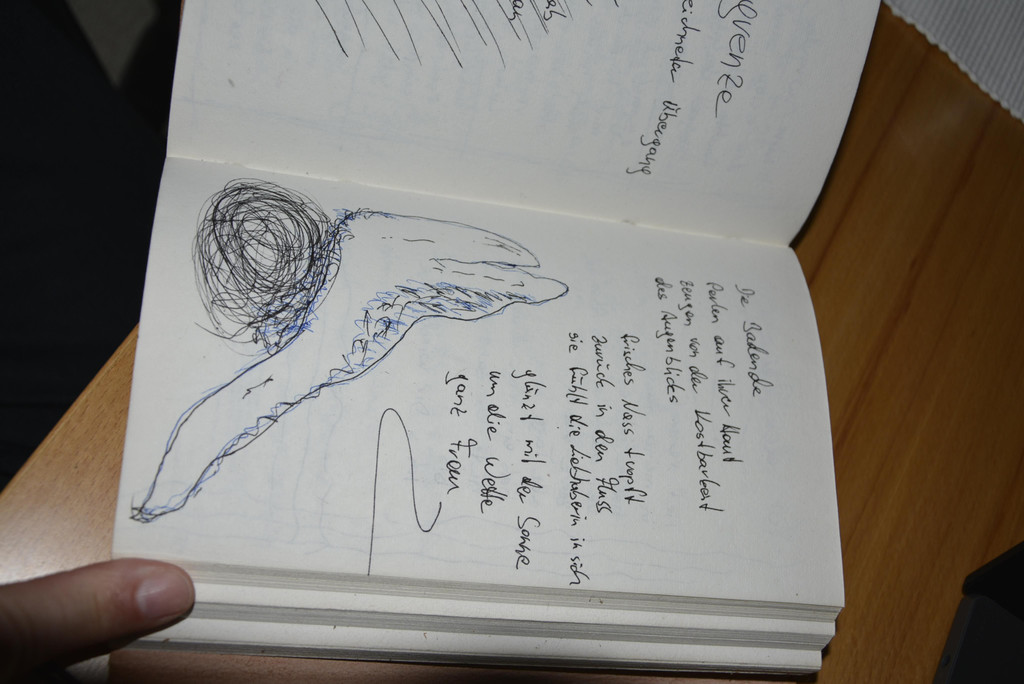 Die Badende
Perlen auf ihrer Haut
zeugen von der Kostbarkeit
des Augenblickes
frisches Nass tropft
zurück in den Fluss
sie fühlt die Liebhaberin in sich
glänzt mit der Sonne
um die Wette
ganz Frau
Übergang